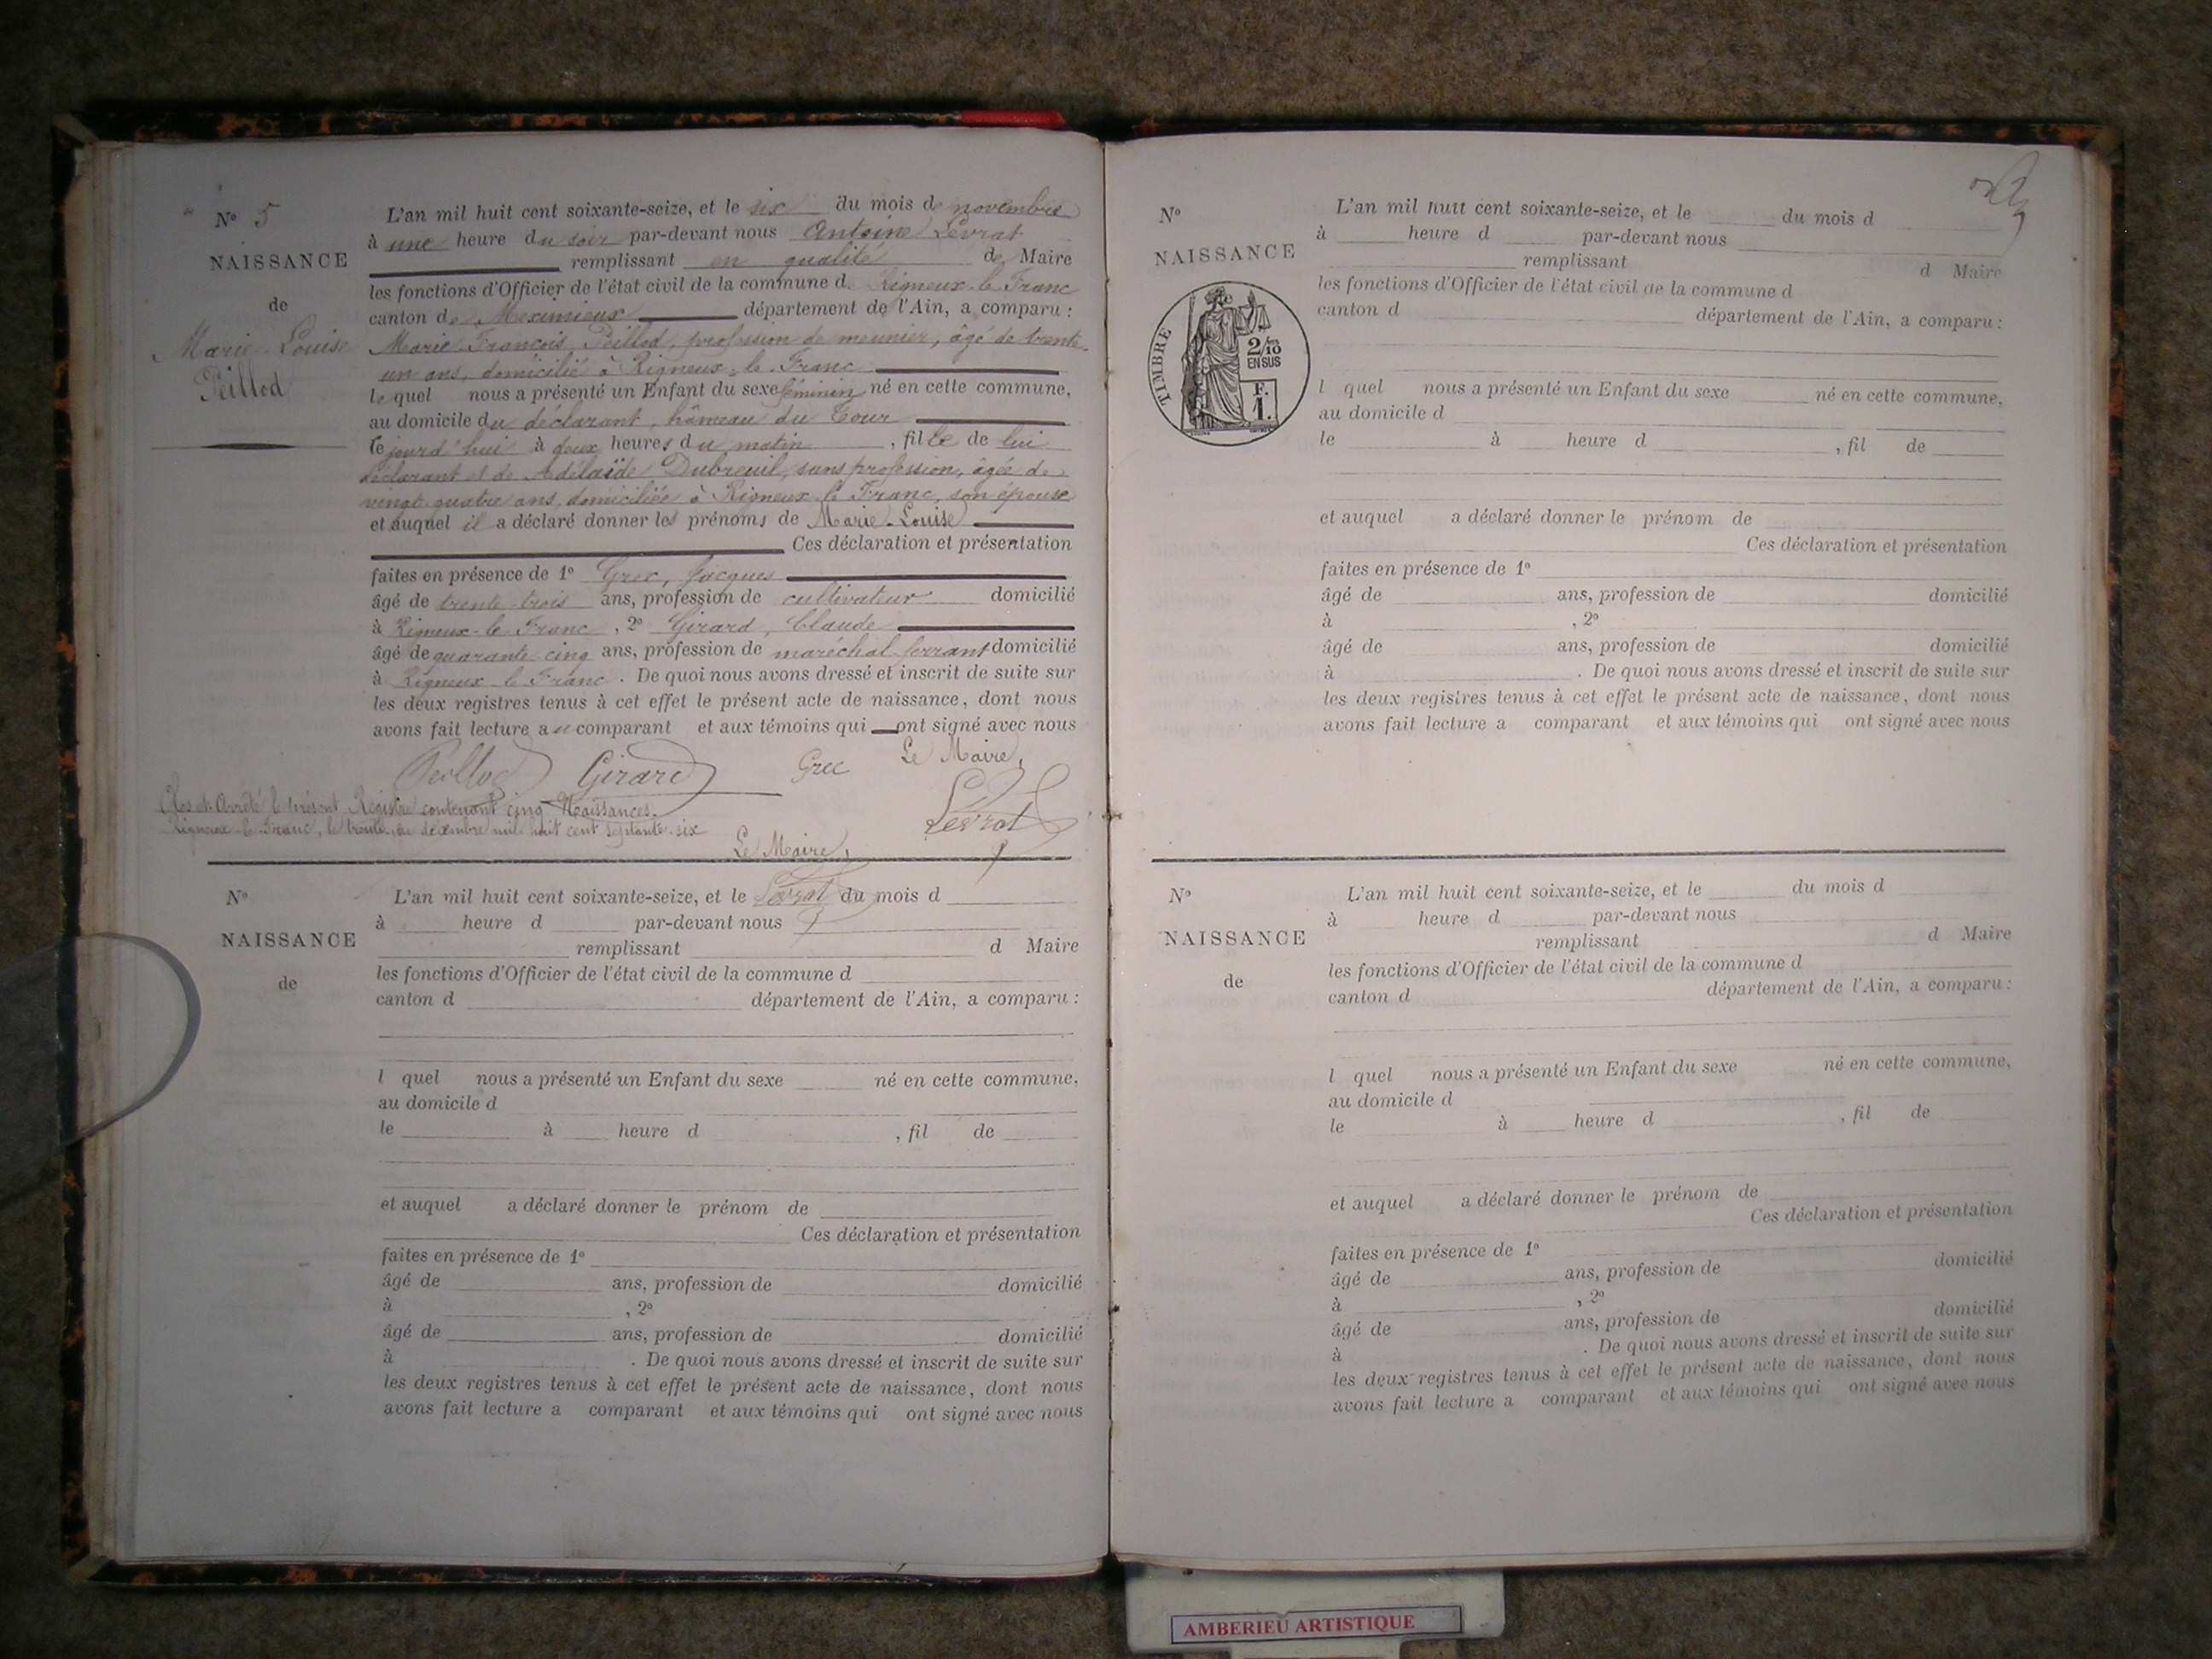 N° 5
NAISSANCE
de
Marie-Louise
Peillod
L'an mil huit cent soixante-seize, et le six du mois de novembre
à une heure du soir par-devant nous Antoine Levrat
remplissant en qualité de Maire
les fonctions d'Officier de l'état civil de la commune d Rigneux-le-Franc
canton de Meximieux département de l'Ain, a comparu :
Marie François Peillod, profession de meunier, âgé de trente-
un ans, domicilié à Rigneux-le-Franc
lequel nous a présenté un Enfant du sexe féminin né en cette commune,
au domicile du déclarant, hameau du Cour
cejourd'hui à deux heures du matin, fille de lui
déclarant et de Adélaïde Dubreuil, sans profession, âgée de
vingt-quatre ans, domiciliée à Rigneux-le-Franc, son épouse
et auquel il a déclaré donner les prénoms de Marie-Louise
Ces déclaration et présentation
faites en présence de 1° Grec, Jacques
âgé de trente-trois ans, profession de cultivateur domicilié
à Rigneux-le-Franc, 2° Girard, Claude
âgé de quarante-cinq ans, profession de maréchal-ferrant domicilié
à Rigneux le Franc. De quoi nous avons dressé et inscrit de suite sur
les deux registres tenus à cet effet le présent acte de naissance, dont nous
avons fait lecture au comparant et aux témoins qui ont signé avec nous
Peillod Girard Grec Le Maire,
Levrat
Clos et Arrêté le présent Registre contenant cinq Naissances.
Rigneux-le-Franc, le trente-un décembre mil huit cent septante-six
Le Maire,
Levrat
N°
NAISSANCE
de
L'an mil huit cent soixante-seize, et le du mois d
à heure d par-devant nous
remplissant d Maire
les fonctions d'Officier de l'état civil de la commune d
canton d département de l'Ain, a comparu :
l quel nous a présenté un Enfant du sexe né en cette commune,
au domicile d
le à heure d , fil de
et auquel a déclaré donner le prénom de
Ces déclaration et présentation
faites en présence de 1°
âgé de ans, profession de domicilié
à , 2°
âgé de ans, profession de domicilié
à . De quoi nous avons dressé et inscrit de suite sur
les deux registres tenus à cet effet le présent acte de naissance, dont nous
avons fait lecture a comparant et aux témoins qui ont signé avec nous
N°
NAISSANCE
TIMBRE
2/10
EN SUS
F.
1.
L'an mil huit cent soixante-seize, et le du mois d
à heure d par-devant nous
remplissant d Maire
les fonctions d'Officier de l'état civil de la commune d
canton d département de l'Ain, a comparu :
l quel nous a présenté un Enfant du sexe né en cette commune,
au domicile d
le à heure d , fil de
et auquel a déclaré donner le prénom de
Ces déclaration et présentation
faites en présence de 1°
âgé de ans, profession de domicilié
à , 2°
âgé de ans, profession de domicilié
à . De quoi nous avons dressé et inscrit de suite sur
les deux registres tenus à cet effet le présent acte de naissance, dont nous
avons fait lecture a comparant et aux témoins qui ont signé avec nous
N°
NAISSANCE
de
L'an mil huit cent soixante-seize, et le du mois d
à heure d par-devant nous
remplissant d Maire
les fonctions d'Officier de l'état civil de la commune d
canton d département de l'Ain, a comparu :
l quel nous a présenté un Enfant du sexe né en cette commune,
au domicile d
le à heure d , fil de
et auquel a déclaré donner le prénom de
Ces déclaration et présentation
faites en présence de 1°
âgé de ans, profession de domicilié
à , 2°
âgé de ans, profession de domicilié
à . De quoi nous avons dressé et inscrit de suite sur
les deux registres tenus à cet effet le présent acte de naissance, dont nous
avons fait lecture a comparant et aux témoins qui ont signé avec nous
AMBERIEU ARTISTIQUE